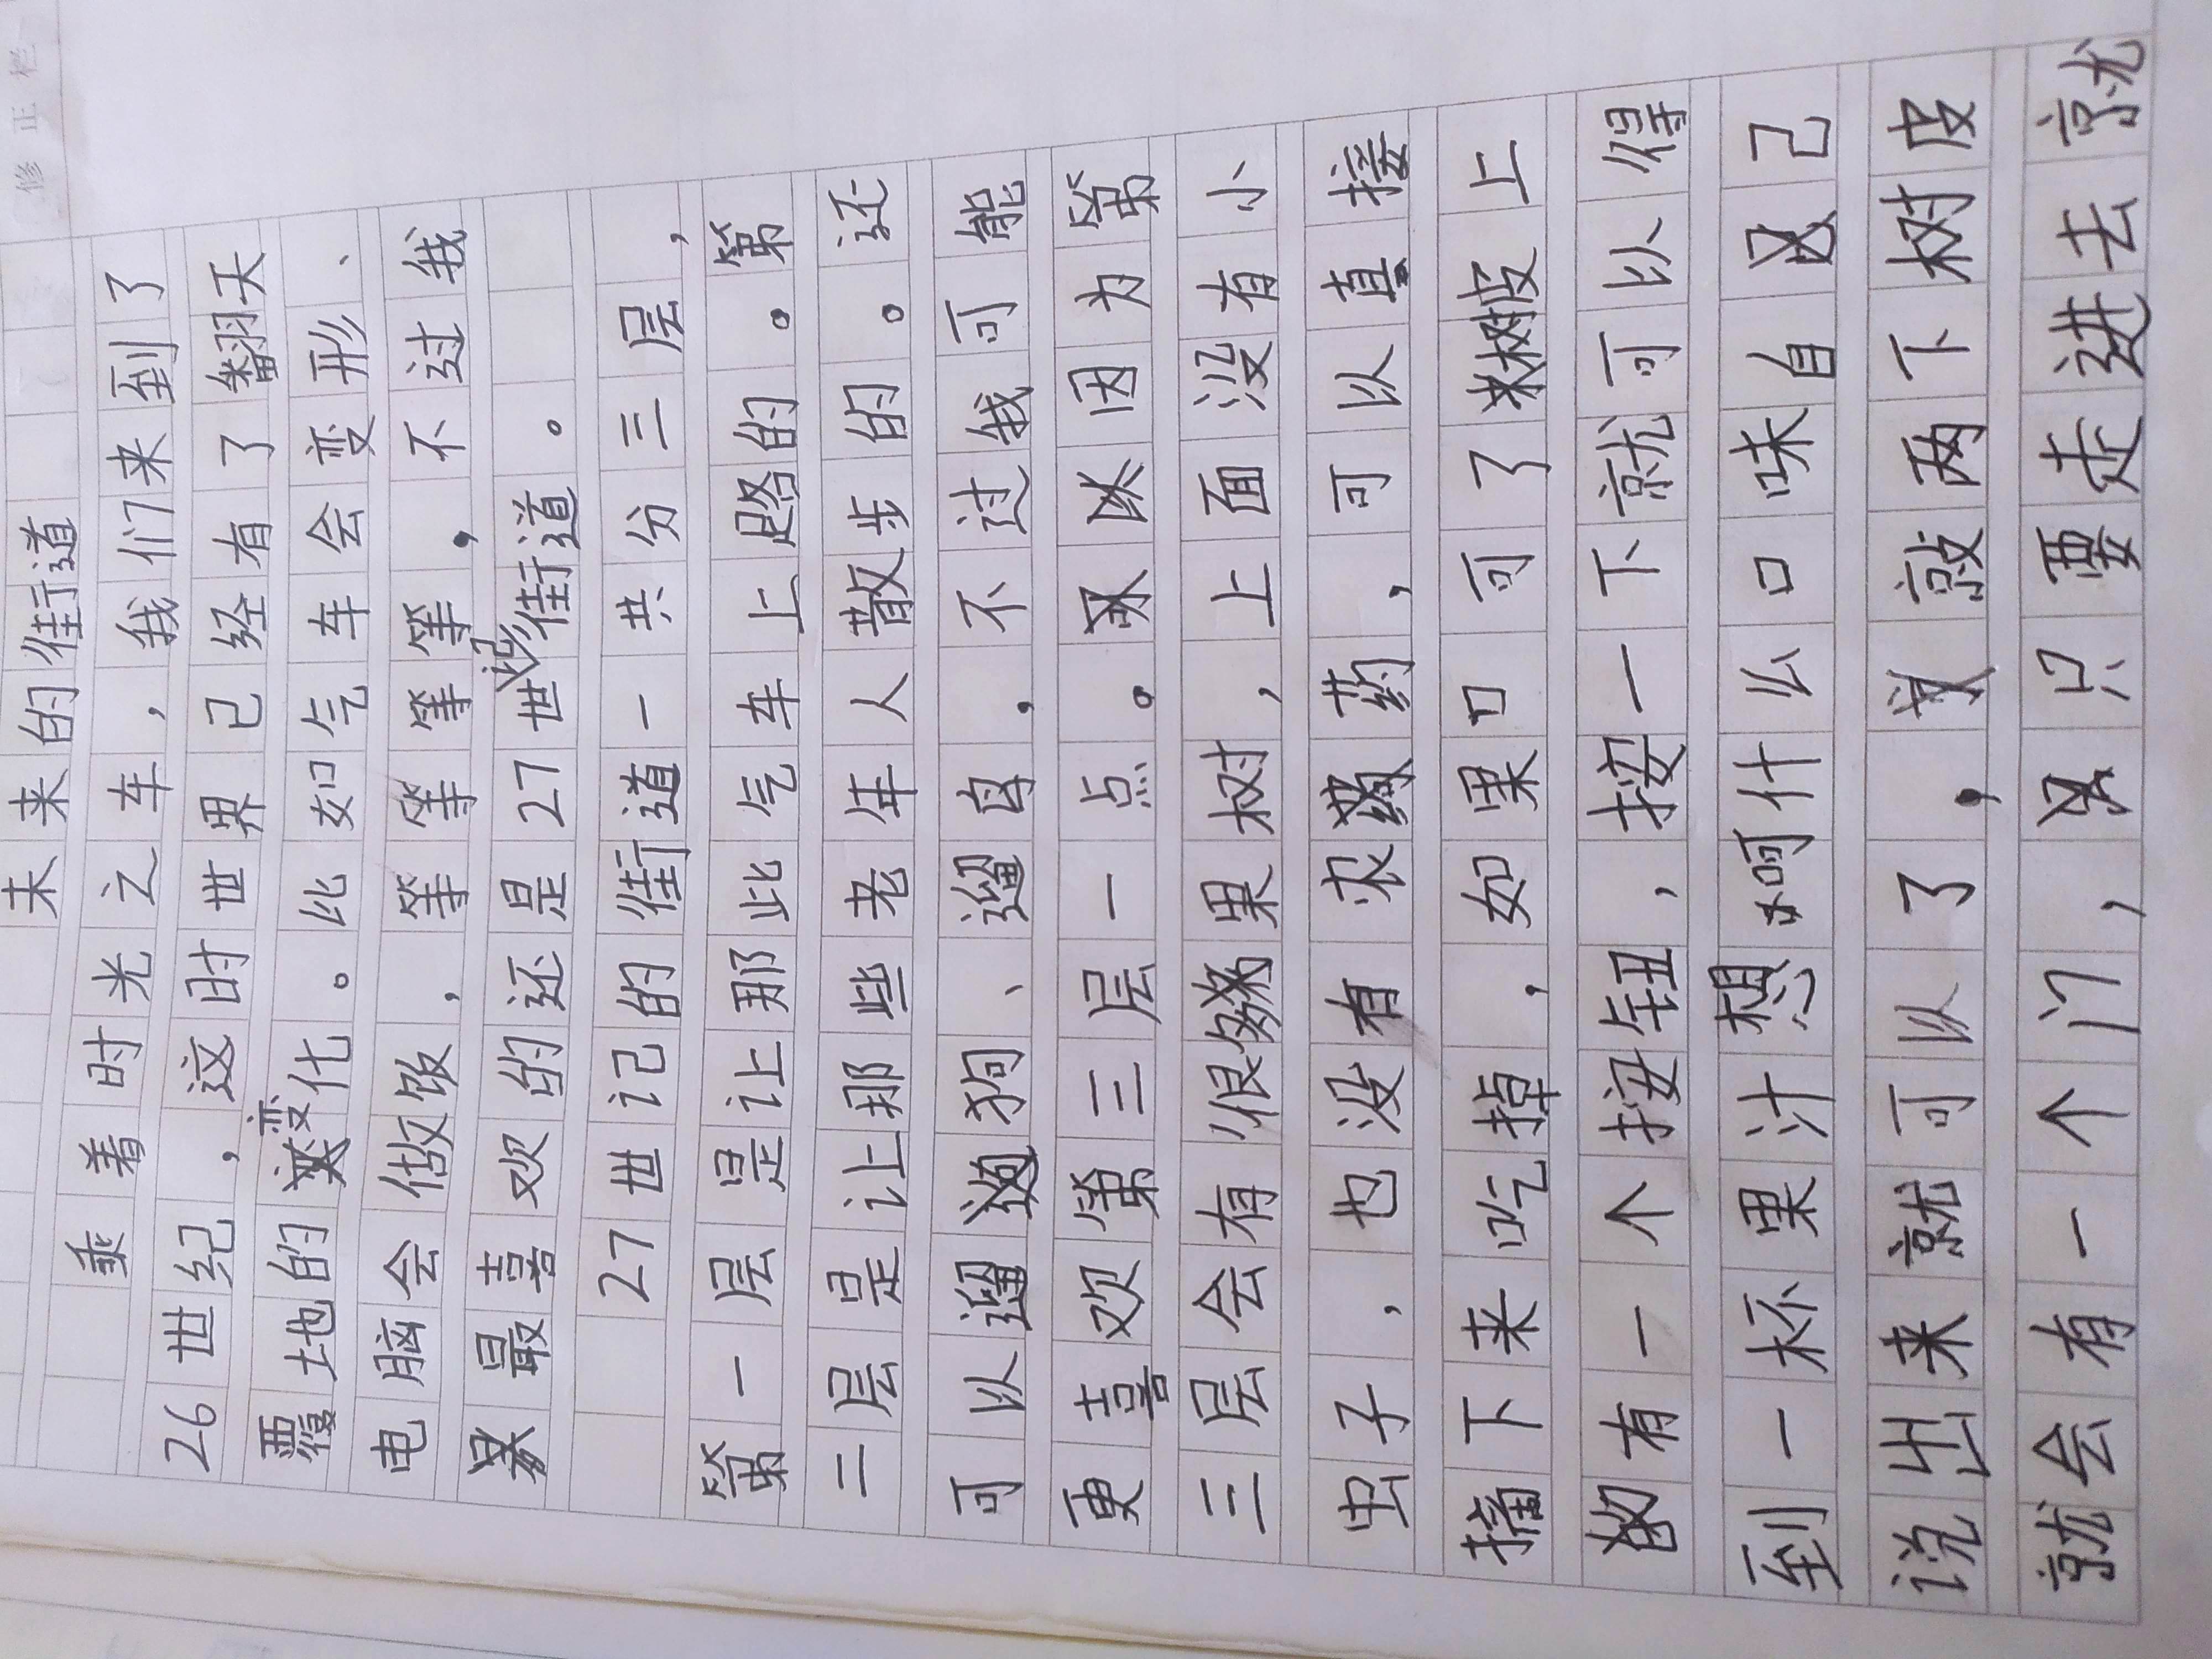 修正栏
未来的街道
乘着时光之车，我们来到了
26世纪，这时世界已经有了翻天
覆地的变化。比如气车会变形、
电脑会做饭，等等等等，不过我
最喜欢的还是27世纪街道。
27世记的街道一共分三层，
第一层是让那此气车上路的。第
二层是让那些老年人散步的。还
可以遛狗、遛鸟，不过我可能
更喜欢第三层一点。因为第
三层会有很多果树，上面没有小
虫子，也没有农药，可以直接
摘下来吃掉，如果口可了树皮上
有一个按钮，按一下就可以得
到一杯果汁想喝什么口味自己
说出来就可以了，敲两下树皮
就会有一个门，只要走进去就